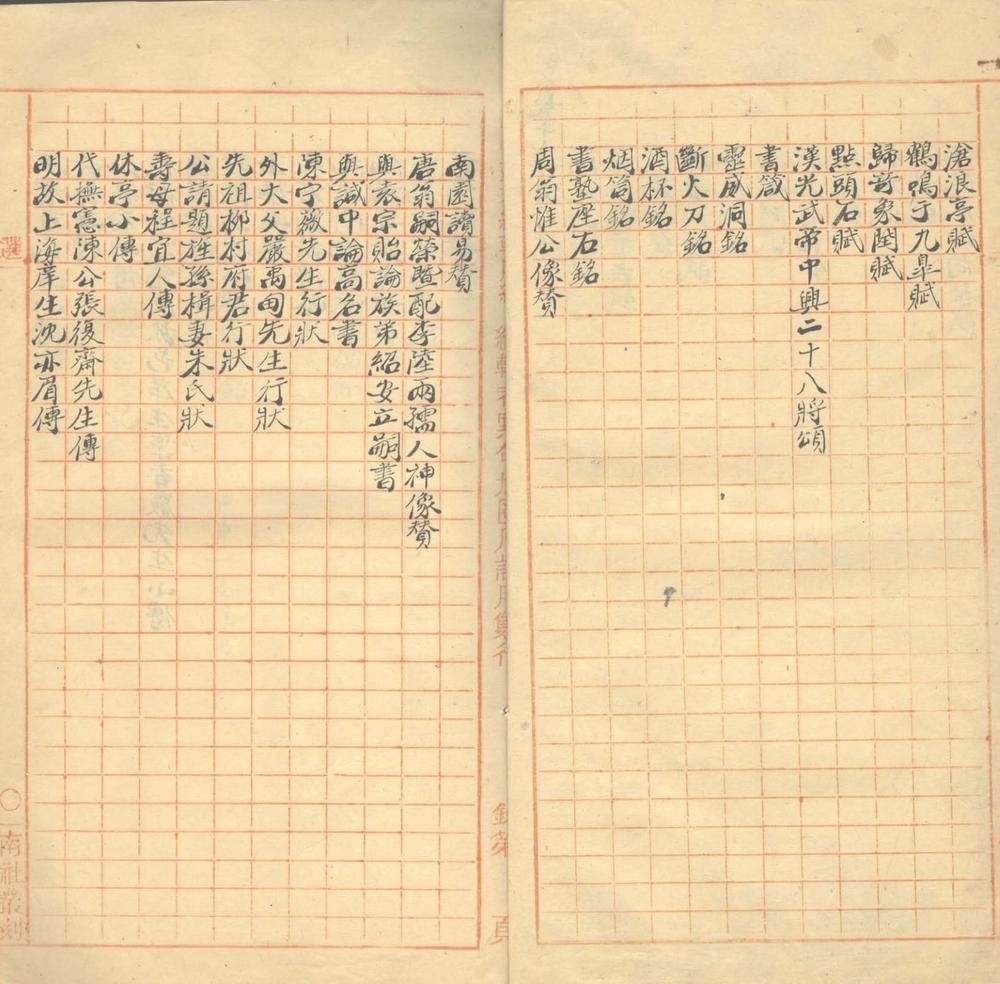 滄浪亭賦
鶴鳴于九臯賦
歸奇象閏賦
點頭石賦
漢光武帝中興二十八將頌
書箴
靈威洞銘
斷火刀銘
酒杯銘
烟筒銘
書塾座右銘
周翁惟公像賛
南園讀易賛
唐翁嗣榮暨配李陸兩孺人神像賛
與袁宗貽論族弟紹安立嗣書
與誠中論高名書
陳宁薇先生行狀
外大父嚴禹甸先生行狀
先祖柳村府君行狀
公請題旌孫楫妻朱氏狀
壽母程宜人傳
休亭小傳
代撫憲陳公張復齋先生傳
明故上海庠生沈亦眉傳
選
〇
南社叢刻